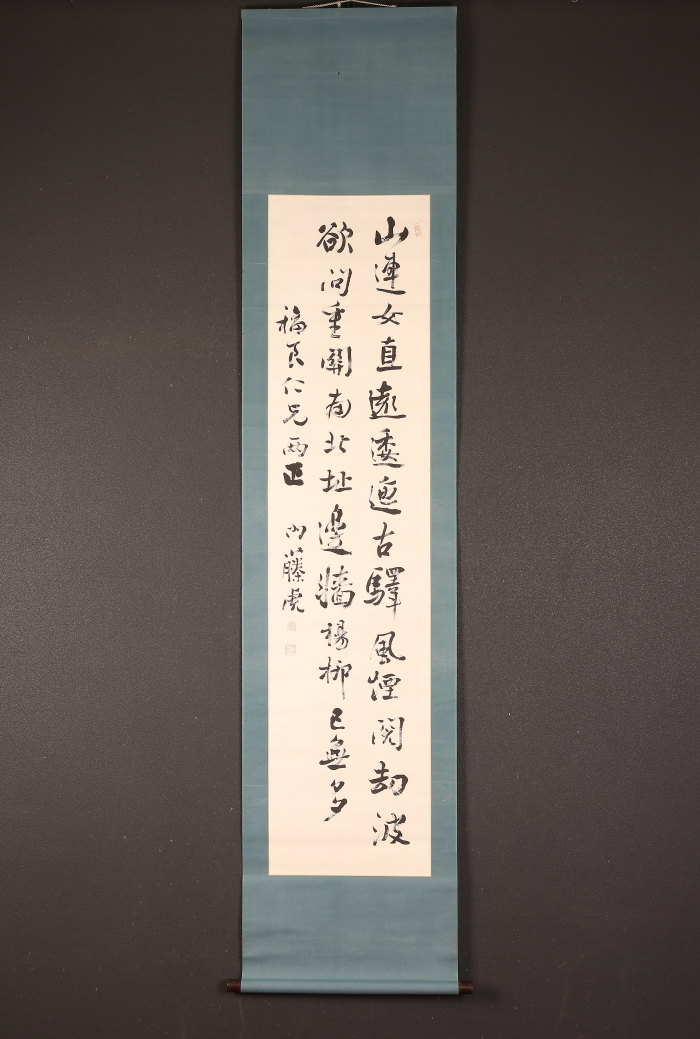 山連女直遠逶迤古驛風煙閱劫波
欲問重關南北址邊牆楊柳已無多
福良仁兄両正 内藤虎